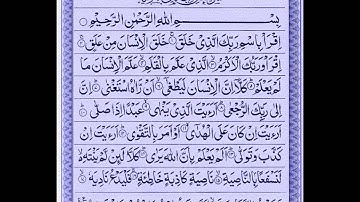 بِسْمِ اللّٰهِ الرَّحْمٰنِ الرَّحِيْمِ
اِقْرَاْ بِاسْمِ رَبِّكَ الَّذِيْ خَلَقَ ۚ خَلَقَ الْاِنْسَانَ مِنْ عَلَقٍ ۚ
اِقْرَاْ وَرَبُّكَ الْاَكْرَمُ ۙ الَّذِيْ عَلَّمَ بِالْقَلَمِ ۙ عَلَّمَ الْاِنْسَانَ مَا
لَمْ يَعْلَمْ ؕ كَلَّاۤ اِنَّ الْاِنْسَانَ لَيَطْغٰٓى ۙ اَنْ رَّاٰهُ اسْتَغْنٰى ؕ اِنَّ
اِلٰى رَبِّكَ الرُّجْعٰى ؕ اَرَءَيْتَ الَّذِيْ يَنْهٰى ۙ عَبْدًا اِذَا صَلّٰى ؕ
اَرَءَيْتَ اِنْ كَانَ عَلَى الْهُدٰٓى ۙ اَوْ اَمَرَ بِالتَّقْوٰى ؕ اَرَءَيْتَ اِنْ
كَذَّبَ وَتَوَلّٰى ؕ اَلَمْ يَعْلَمْ بِاَنَّ اللّٰهَ يَرٰى ؕ كَلَّا لَئِنْ لَّمْ يَنْتَهِ ۙ
لَنَسْفَعًۢا بِالنَّاصِيَةِ ۙ نَاصِيَةٍ كَاذِبَةٍ خَاطِئَةٍ ۚ فَلْيَدْعُ نَادِيَهٗ ۙ